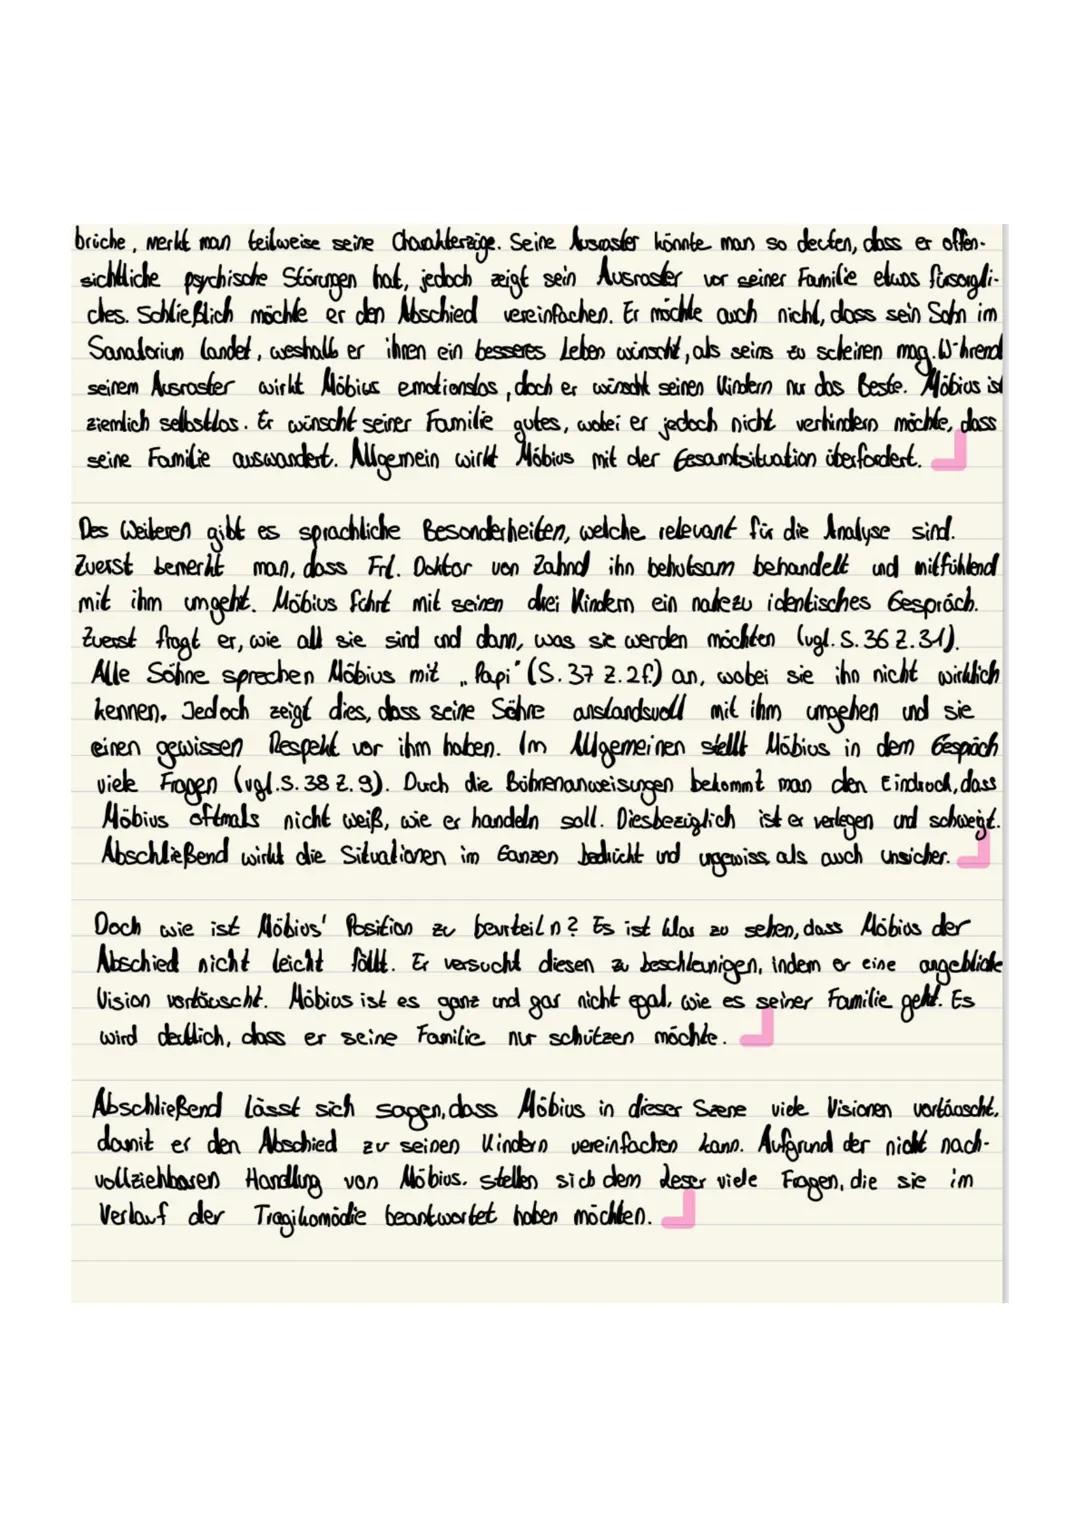 brüche, merkt man teilweise seine Charakterzüge. Seine Ausraster könnte man so deuten, dass er offen-
sichtliche psychische Störungen hat, jedoch zeigt sein Ausraster vor seiner Familie etwas fürsorgli-
ches. Schließlich möchte er den Abschied vereinfachen. Er möchte auch nicht, dass sein Sohn im
Sanatorium landet, weshalb er ihnen ein besseres Leben wünscht, als seins zu scheinen mag. W-hrend
seinem Ausraster wirkt Möbius emotionslos, doch er wünscht seinen Kindern nur das Beste. Möbius ist
ziemlich selbstlos. Er wünscht seiner Familie gutes, wobei er jedoch nicht verhindern möchte, dass
seine Familie auswandert. Allgemein wirkt Möbius mit der Gesamtsituation überfordert.
Des Weiteren gibt es sprachliche Besonderheiten, welche relevant für die Analyse sind.
Zuerst bemerkt man, dass Frl. Doktor von Zahnd ihn behutsam behandelt und mitfühlend
mit ihm umgeht. Möbius führt mit seinen drei Kindern ein nahezu identisches Gespräch.
Zuerst fragt er, wie alt sie sind und dann, was sie werden möchten (vgl. S. 36 Z. 31).
Alle Söhne sprechen Möbius mit „Papi" (S. 37 Z. 2f.) an, wobei sie ihn nicht wirklich
kennen. Jedoch zeigt dies, dass seine Söhne anstandsvoll mit ihm umgehen und sie
einen gewissen Respekt vor ihm haben. Im Allgemeinen stellt Möbius in dem Gespräch
viele Fragen (vgl. S. 38 Z. 9). Durch die Bühnenanweisungen bekommt man den Eindruck, dass
Möbius oftmals nicht weiß, wie er handeln soll. Diesbezüglich ist er verlegen und schweigt.
Abschließend wirkt die Situationen im Ganzen bedrückt und ungewiss, als auch unsicher.
Doch wie ist Möbius' Position zu beurteiln? Es ist klar zu sehen, dass Möbius der
Abschied nicht leicht fällt. Er versucht diesen zu beschleunigen, indem er eine angebliche
Vision vortäuscht. Möbius ist es ganz und gar nicht egal, wie es seiner Familie geht. Es
wird deutlich, dass er seine Familie nur schützen möchte.
Abschließend lässt sich sagen, dass Möbius in dieser Szene viele Visionen vortäuscht,
damit er den Abschied zu seinen Kindern vereinfachen kann. Aufgrund der nicht nach-
vollziehbaren Handlung von Möbius, stellen sich dem Leser viele Fragen, die sie im
Verlauf der Tragikomödie beantwortet haben möchten.